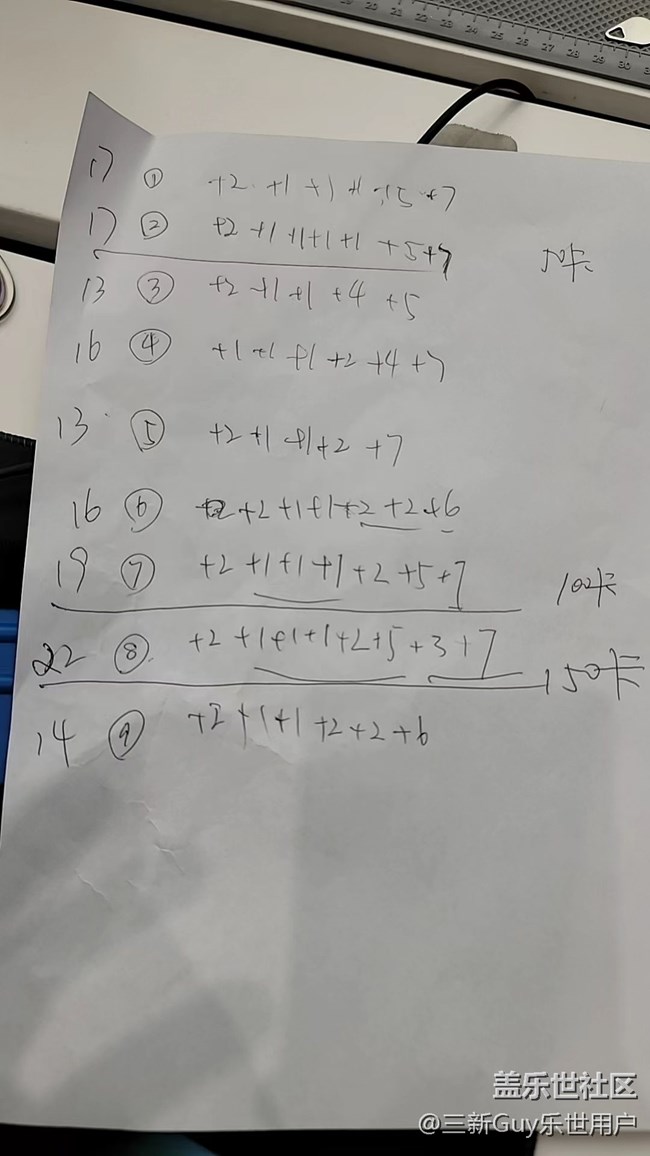 17 ① +2 +1 +1 +1 +5 +7
17 ② +2 +1 +1 +1 +1 +5 +7 50卡
13 ③ +2 +1 +1 +4 +5
16 ④ +1 +1 +1 +2 +4 +7
13 ⑤ +2 +1 +1 +2 +7
16 ⑥ +2 +1 +1 +2 +2 +6
19 ⑦ +2 +1 +1 +1 +2 +5 +7 100卡
22 ⑧ +2 +1 +1 +1 +2 +5 +3 +7 150卡
14 ⑨ +2 +1 +1 +2 +2 +6
盖乐世社区
@三新Guy乐世用户